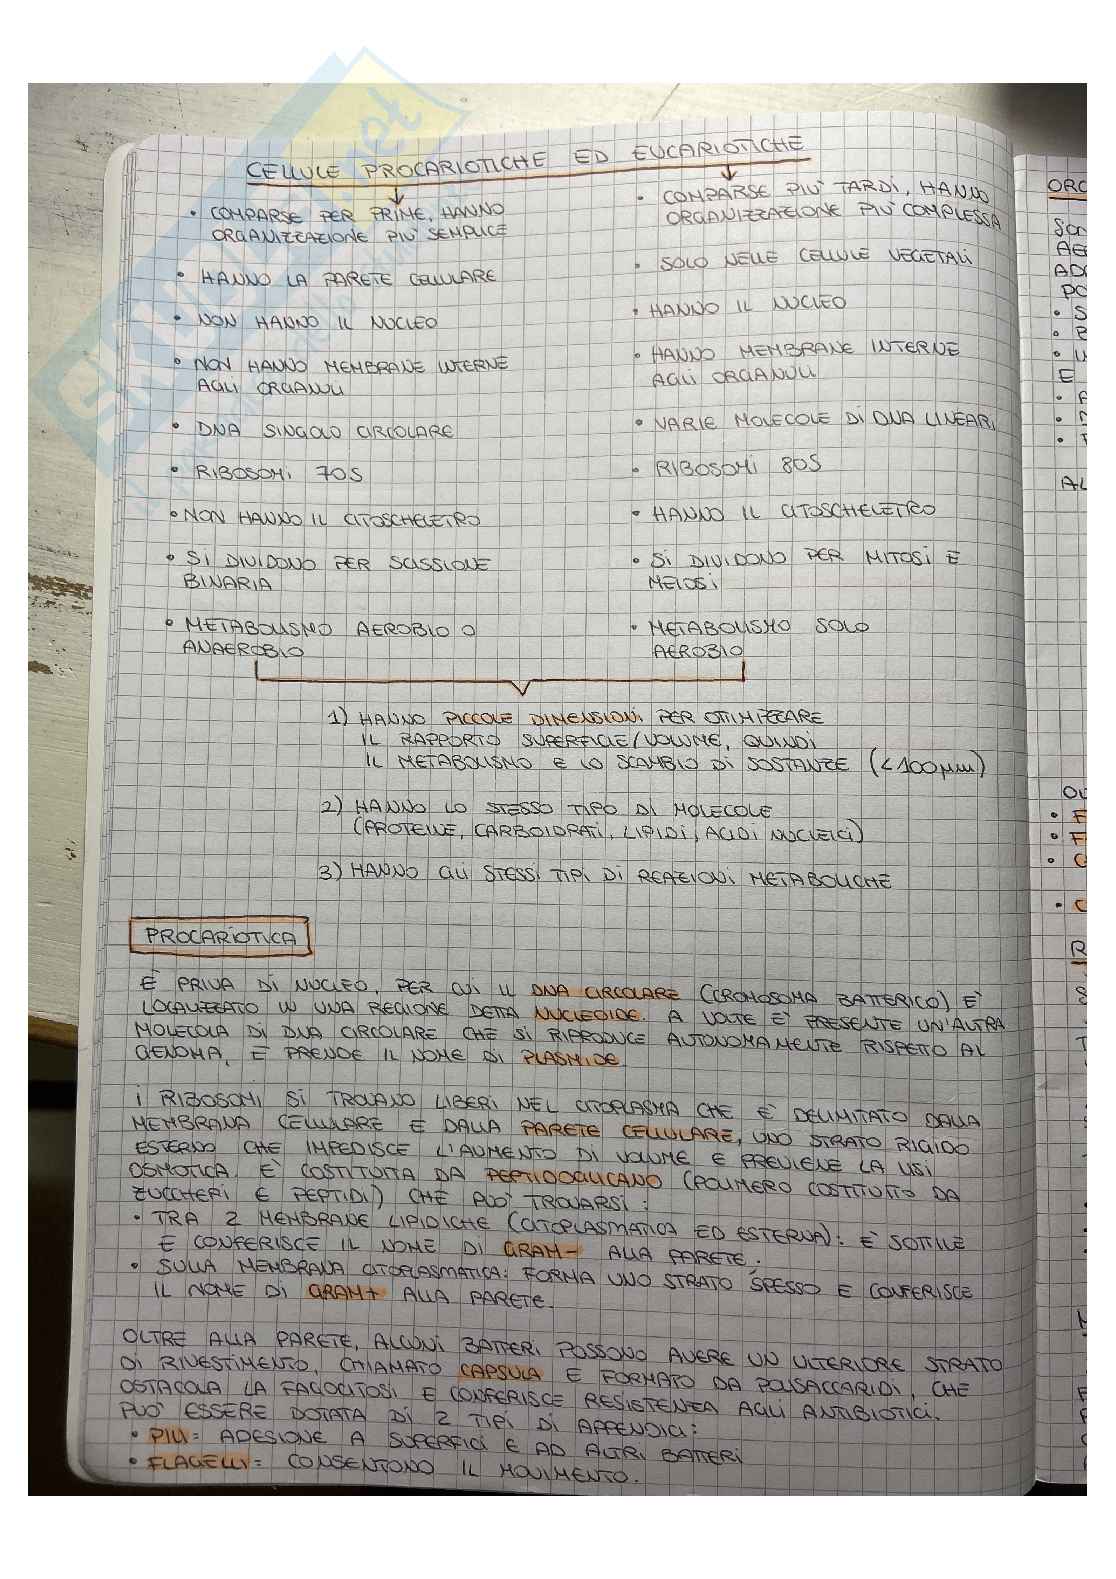 CELLULE PROCARIOTICHE ED EUCARIOTICHE
• COMPARSE PER PRIME, HANNO
ORGANIZZAZIONE PIU' SEMPLICE
• HANNO LA PARETE CELLULARE
• NON HANNO IL NUCLEO
• NON HANNO MEMBRANE INTERNE
AGLI ORGANULI
• DNA SINGOLO CIRCOLARE
• RIBOSOMI 70S
• NON HANNO IL CITOSCHELETRO
• SI DIVIDONO PER SCISSIONE
BINARIA
• METABOLISMO AEROBIO O
ANAEROBIO
• COMPARSE PIU' TARDI, HANNO
ORGANIZZAZIONE PIU' COMPLESSA
• SOLO NELLE CELLULE VEGETALI
• HANNO IL NUCLEO
• HANNO MEMBRANE INTERNE
AGLI ORGANULI
• VARIE MOLECOLE DI DNA LINEARI
• RIBOSOMI 80S
• HANNO IL CITOSCHELETRO
• SI DIVIDONO PER MITOSI E
MEIOSI
• METABOLISMO SOLO
AEROBIO
1) HANNO PICCOLE DIMENSIONI PER OTTIMIZZARE
IL RAPPORTO SUPERFICIE/VOLUME, QUINDI
IL METABOLISMO E LO SCAMBIO DI SOSTANZE (<100μm)
2) HANNO LO STESSO TIPO DI MOLECOLE
(PROTEINE, CARBOIDRATI, LIPIDI, ACIDI NUCLEICI)
3) HANNO GLI STESSI TIPI DI REAZIONI METABOLICHE
PROCARIOTICA
È PRIVA DI NUCLEO, PER CUI IL DNA CIRCOLARE (CROMOSOMA BATTERICO) E'
LOCALIZZATO IN UNA REGIONE DETTA NUCLEOIDE. A VOLTE E' PRESENTE UN'ALTRA
MOLECOLA DI DNA CIRCOLARE CHE SI RIPRODUCE AUTONOMAMENTE RISPETTO AL
GENOMA, E PRENDE IL NOME DI PLASMIDE.
I RIBOSOMI SI TROVANO LIBERI NEL CITOPLASMA CHE E' DELIMITATO DALLA
MEMBRANA CELLULARE E DALLA PARETE CELLULARE, UNO STRATO RIGIDO
ESTERNO CHE IMPEDISCE L'AUMENTO DI VOLUME E PREVIENE LA LISI
OSMOTICA. E' COSTITUITA DA PEPTIDOGLICANO (POLIMERO COSTITUITO DA
ZUCCHERI E PEPTIDI) CHE PUO' TROVARSI:
• TRA 2 MEMBRANE LIPIDICHE (CITOPLASMATICA ED ESTERNA): E' SOTTILE
E CONFERISCE IL NOME DI GRAM- ALLA PARETE.
• SULLA MEMBRANA CITOPLASMATICA: FORMA UNO STRATO SPESSO E CONFERISCE
IL NOME DI GRAM+ ALLA PARETE.
OLTRE ALLA PARETE, ALCUNI BATTERI POSSONO AVERE UN ULTERIORE STRATO
DI RIVESTIMENTO, CHIAMATO CAPSULA E FORMATO DA POLISACCARIDI, CHE
OSTACOLA LA FAGOCITOSI E CONFERISCE RESISTENZA AGLI ANTIBIOTICI.
PUO' ESSERE DOTATA DI 2 TIPI DI APPENDICI:
• PILI = ADESIONE A SUPERFICI E AD ALTRI BATTERI
• FLAGELLI = CONSENTONO IL MOVIMENTO.